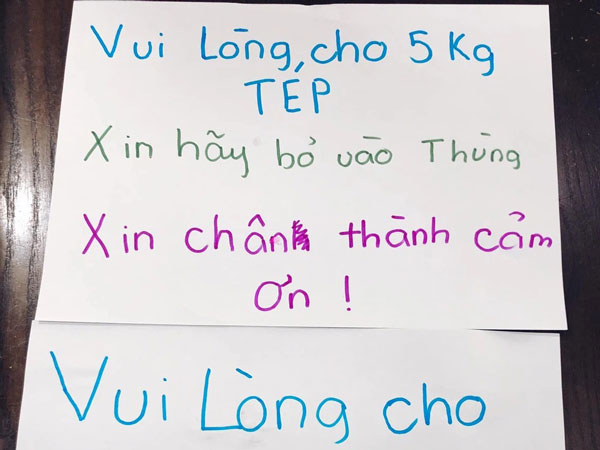 Vui Lòng, cho 5 Kg
TEP
Xin hãy bỏ vào Thùng
Xin chân thành cảm
ơn !
Vui Lòng cho